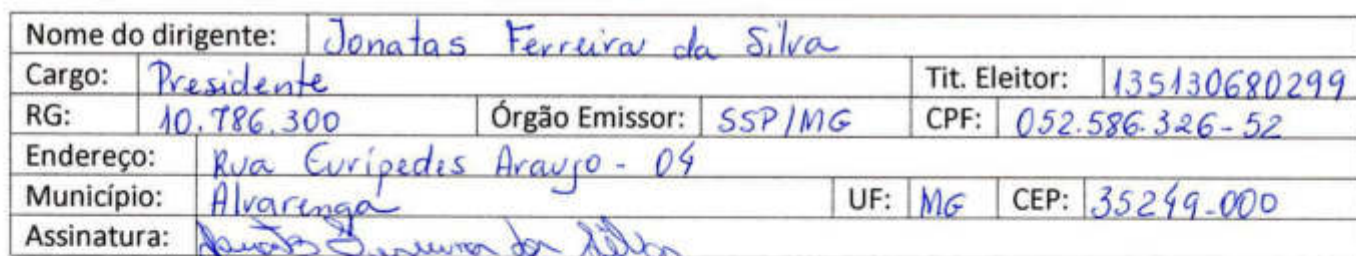 Nome do dirigente: Jonatas Ferreira da Silva
Cargo: Presidente Tit. Eleitor: 135130680299
RG: 10.786.300 Órgão Emissor: SSP/MG CPF: 052.586.326-52
Endereço: Rua Eurípedes Araujo - 04
Município: Alvarenga UF: MG CEP: 35249-000
Assinatura: Jonatas Ferreira da Silva